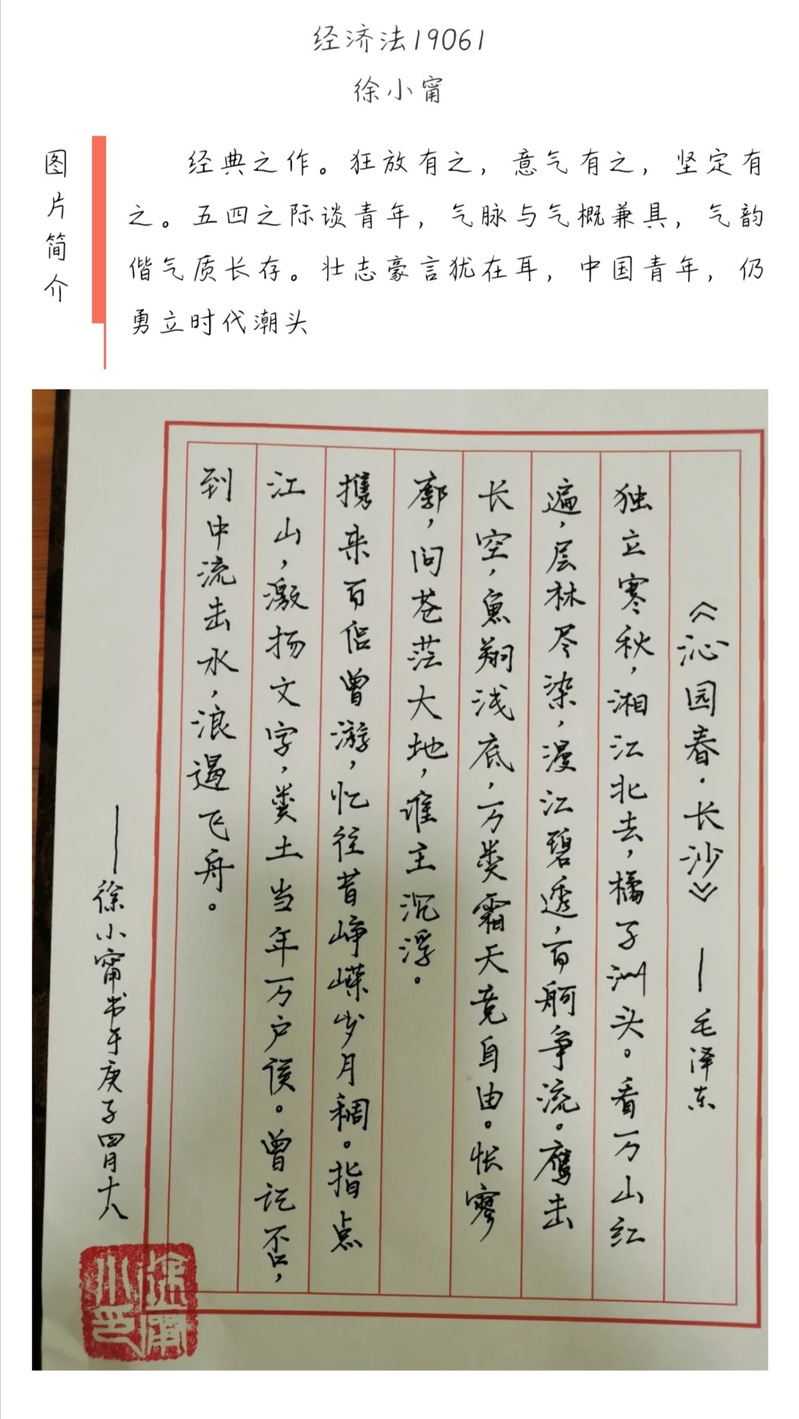 经济法19061
徐小甯
图片简介
经典之作。狂放有之，意气有之，坚定有
之。五四之际谈青年，气脉与气概兼具，气韵
偕气质长存。壮志豪言犹在耳，中国青年，仍
勇立时代潮头
《沁园春·长沙》 — 毛泽东
独立寒秋，湘江北去，橘子洲头。看万山红
遍，层林尽染，漫江碧透，百舸争流。鹰击
长空，鱼翔浅底，万类霜天竞自由。怅寥
廓，问苍茫大地，谁主沉浮。
携来百侣曾游，忆往昔峥嵘岁月稠。指点
江山，激扬文字，粪土当年万户侯。曾记否，
到中流击水，浪遏飞舟。
——徐小甯书于庚子四月十八
徐小甯印